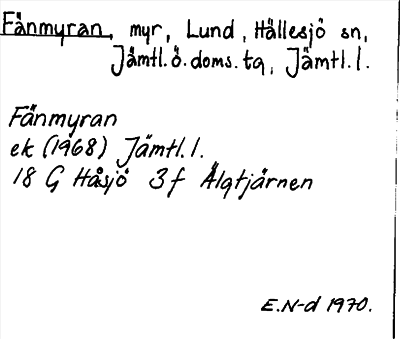 Fänmyran, myr, Lund, Hällesjö sn,
Jämtl.ö.doms.tg, Jämtl.l.
Fänmyran
ek (1968) Jämtl.l.
18 G Håsjö 3f Älgtjärnen
E.N-d 1970.